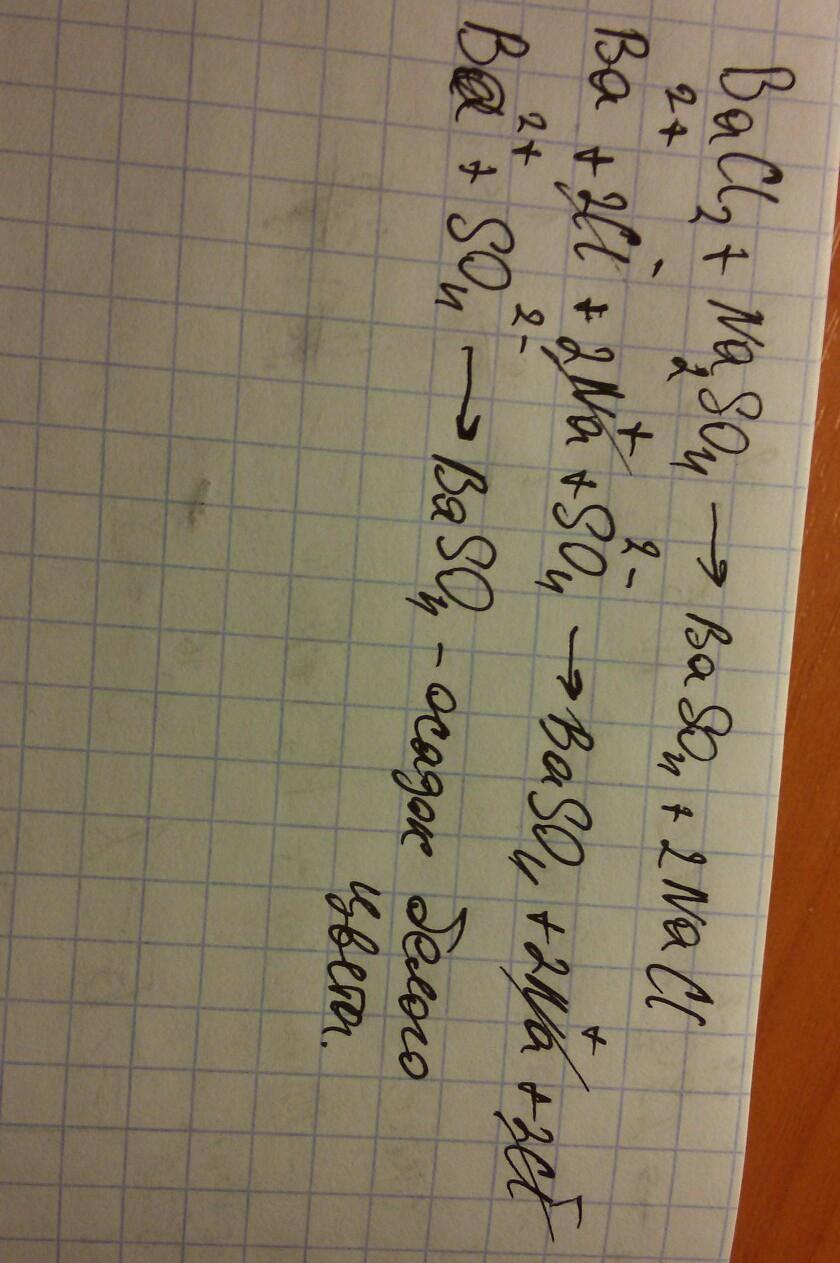 BaCl₂ + Na₂SO₄ → BaSO₄ + 2NaCl
Ba²⁺ + 2Cl⁻ + 2Na⁺ + SO₄²⁻ → BaSO₄ + 2Na⁺ + 2Cl⁻
Ba²⁺ + SO₄²⁻ → BaSO₄ - осадок белого
цвета.